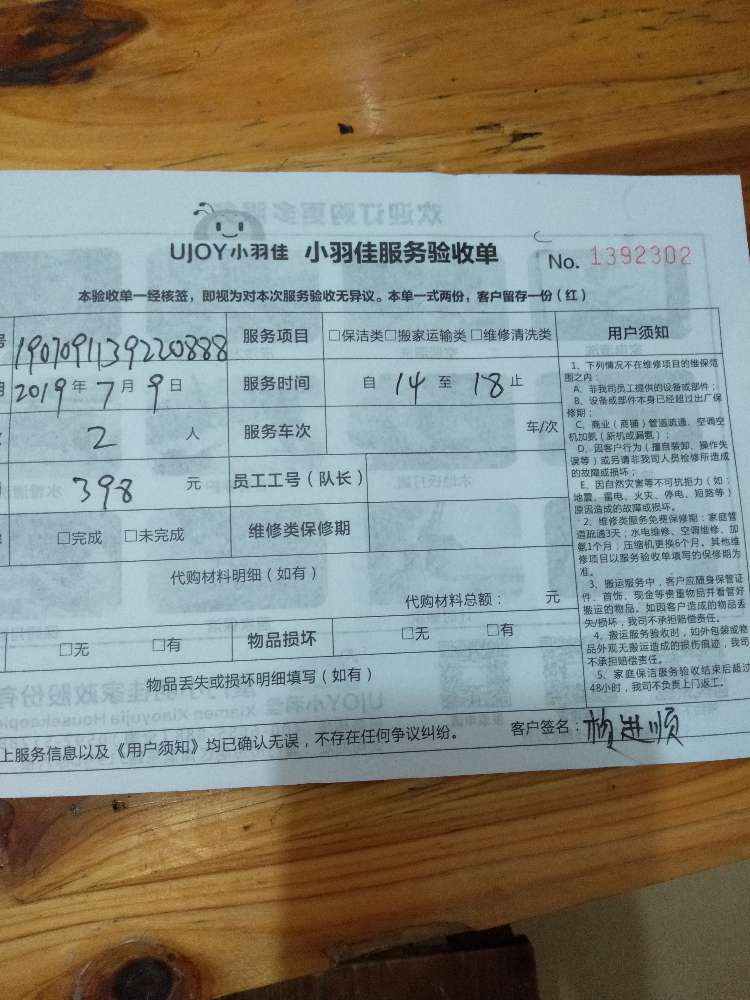 UJOY小羽佳 小羽佳服务验收单 No. 1392302
本验收单一经核签，即视为对本次服务验收无异议。本单一式两份，客户留存一份（红）
号 190709113922088​8 服务项目 □保洁类□搬家运输类□维修清洗类
2019年7月9日 服务时间 自 14 至 18 止
2 人 服务车次 车/次
398 元 员工工号（队长）
□完成 □未完成 维修类保修期
代购材料明细（如有）
代购材料总额： 元
□无 □有 物品损坏 □无 □有
物品丢失或损坏明细填写（如有）
上服务信息以及《用户须知》均已确认无误，不存在任何争议纠纷。 客户签名：杨进顺
用户须知
1、下列情况不在维修项目的维保范
围之内：
A、非我司员工提供的设备或部件；
B、设备或部件本身已经超过出厂保
修期；
C、商业（商铺）管道疏通、空调空
机加氨（新机或漏氨）；
D、因客户行为（擅自装卸、操作失
误等）或另请非我司人员检修所造成
的故障或损坏；
E、因自然灾害等不可抗拒力（如：
地震、雷电、火灾、停电、短路等）
原因造成的故障或损坏。
2、维修类服务免费保修期：家庭管
道疏通3天；水电维修、空调维修、加
氨1个月；压缩机更换6个月。其他维
修项目以服务验收单填写的保修期为
准。
3、搬运服务中，客户应随身保管证
件、首饰、现金等贵重物品并看管好
搬运的物品。如因客户造成的物品丢
失/损坏，我司不承担赔偿责任。
4、搬运服务验收时，如外包装或物
品外观无搬运造成的损伤痕迹，我司
不承担赔偿责任。
5、家庭保洁服务验收结束后超过
48小时，我司不负责上门返工。